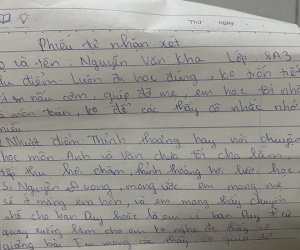 Thứ ngày
Phiếu tự nhận xét
Họ và tên: Nguyễn Văn Kha Lớp 8A3
Ưu điểm: Luôn đi học đúng, ko trốn tiết
nấu cơm, giúp đỡ mẹ, em học tốt nhất
môn toán, ko để các thầy cô nhắc nhở
nhiều
Nhược điểm: Thỉnh thoảng hay nói chuyện
học môn Anh và Văn chưa tốt cho lắm,
tiếp thu hơi chậm thỉnh thoảng hơi lười học
Nguyện vọng, mong ước em mong mẹ
sẽ mắng em hơn, và em mong thầy chuyển
chỗ cho bạn Duy hoặc là em vì bạn Duy
quay xuống làm cho em ko nghe đc thầy cô
giảng bài Em mong các thầy cô